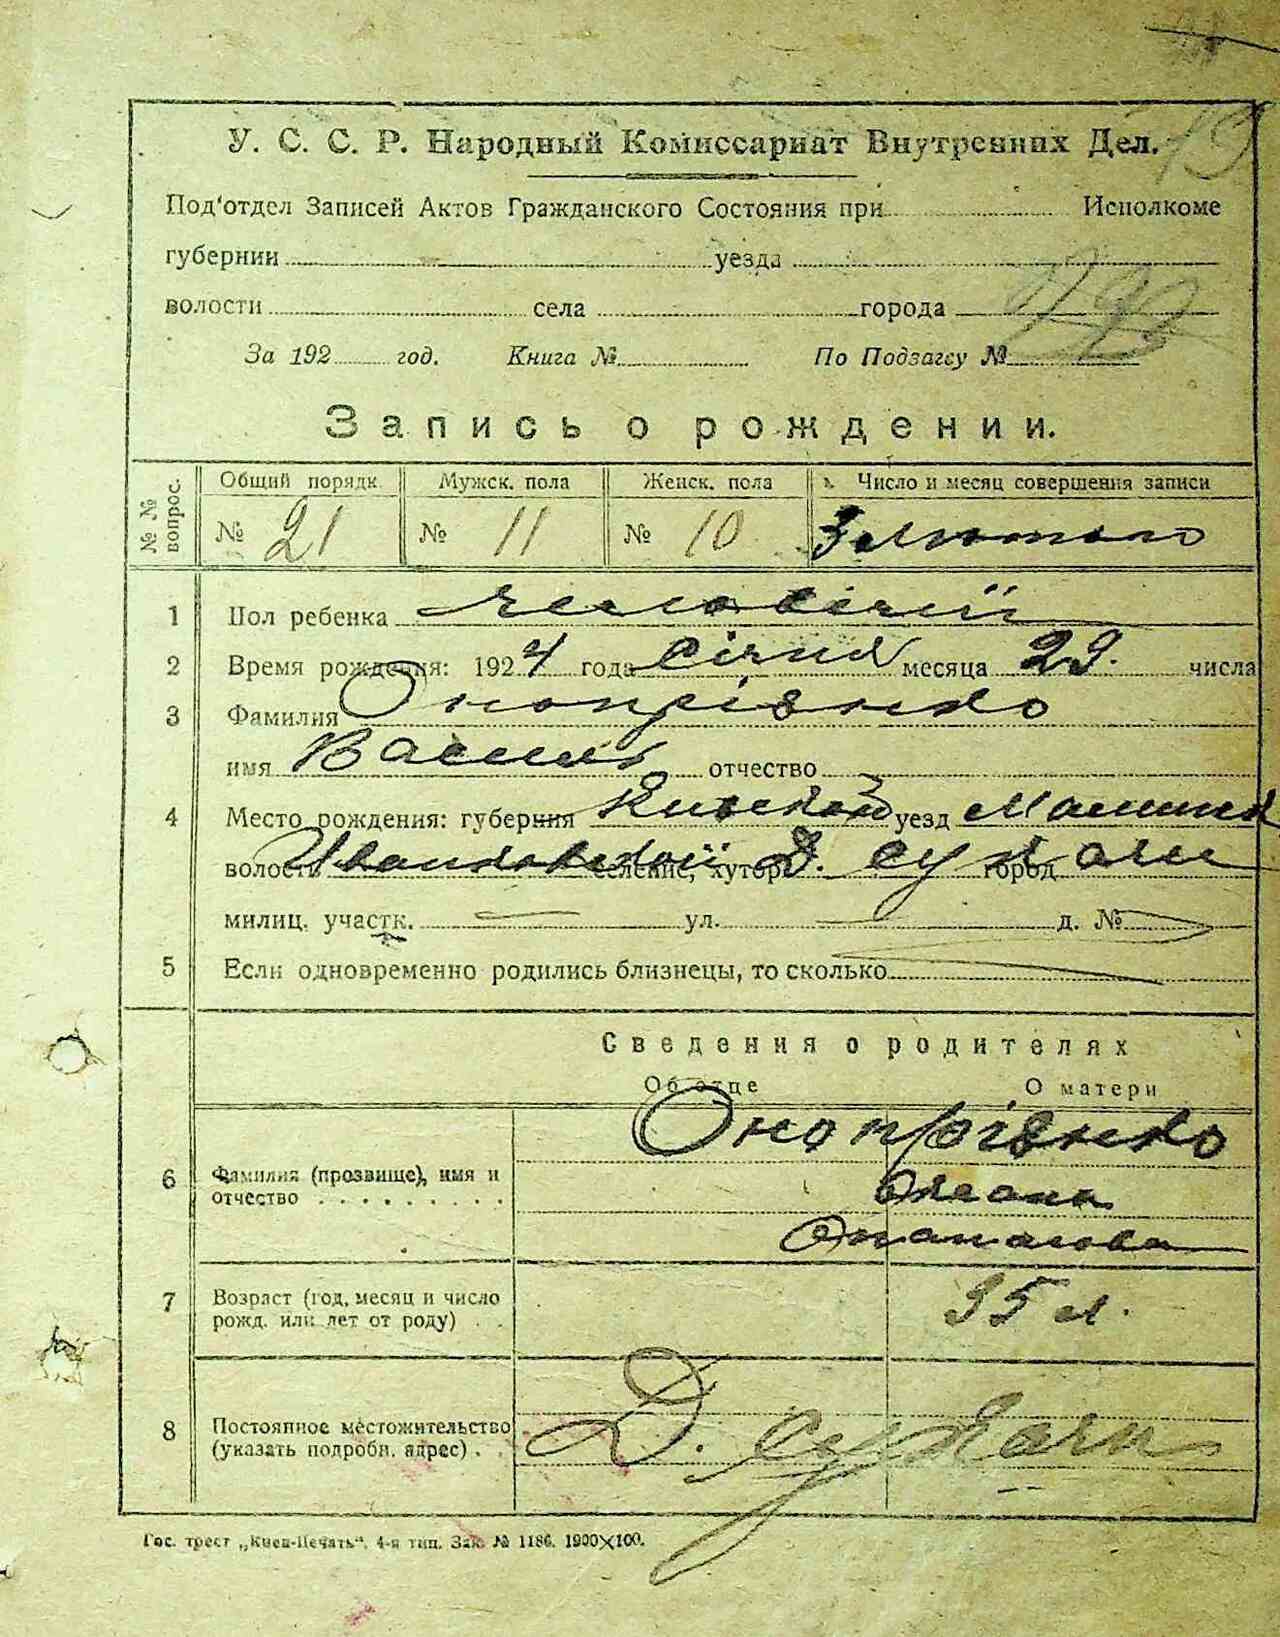 19
У. С. С. Р. Народный Комиссариат Внутренних Дел.
Под'отдел Записей Актов Гражданского Состояния при Исполкоме
губернии уезда
волости села города
За 192 год. Книга № По Подзагсу №
Запись о рождении.
№ № вопрос. Общий порядк. Мужск. пола Женск. пола Число и месяц совершения записи
№ 21 № 11 № 10 3 лютого
1 Пол ребенка чоловічий
2 Время рождения: 1924 года січня месяца 29. числа
3 Фамилия Онопрієнко
имя Василь отчество
4 Место рождения: губерния Киевской уезд
волость Иванковской селение, хутор Д. Сукачи город
милиц. участк. ул. д. №
5 Если одновременно родились близнецы, то сколько
Сведения о родителях
Об отце О матери
6 Фамилия (прозвище), имя и отчество Онопрієнко
Оксана
7 Возраст (год, месяц и число рожд. или лет от роду) 35 л.
8 Постоянное местожительство (указать подробн. адрес) Д. Сукачи
Гос. трест „Киев-Печать", 4-я тип. Зак. № 1186. 1900×100.